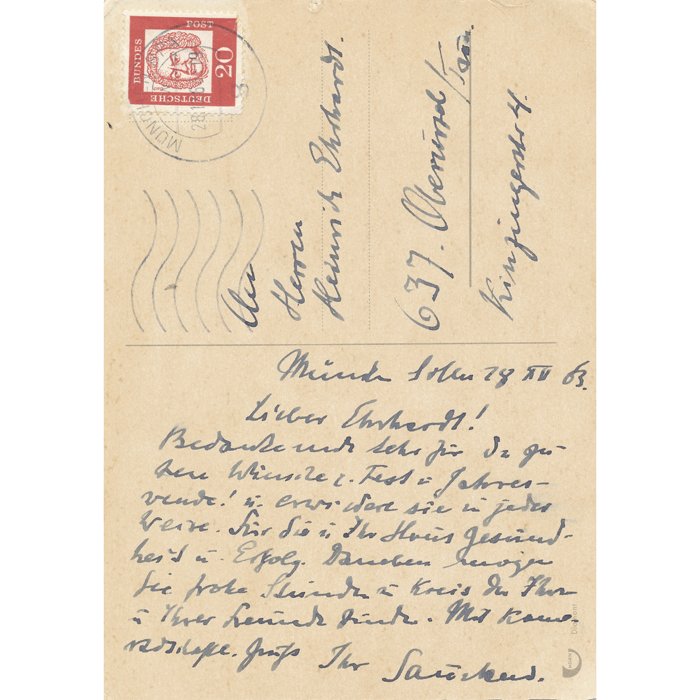 DEUTSCHE
BUNDES
POST
20
MÜNCH
28.1
An
Herrn
Heinrich Ehrhardt.
637. Oberursel/Taun.
Kinzingerstr 4.
München Solln 28 XII 63.
Lieber Ehrhardt!
Bedanke mich sehr für die gu-
ten Wünsche z. Fest u. Jahres-
wende! u. erwidere sie in jeder
Weise. Für Sie u Ihr Haus Gesund-
heit u. Erfolg. Daneben mögen
Sie frohe Stunden u Kreis der Ihren
u Ihrer Freunde finden. Mit kame-
radschaftl. Gruß Ihr